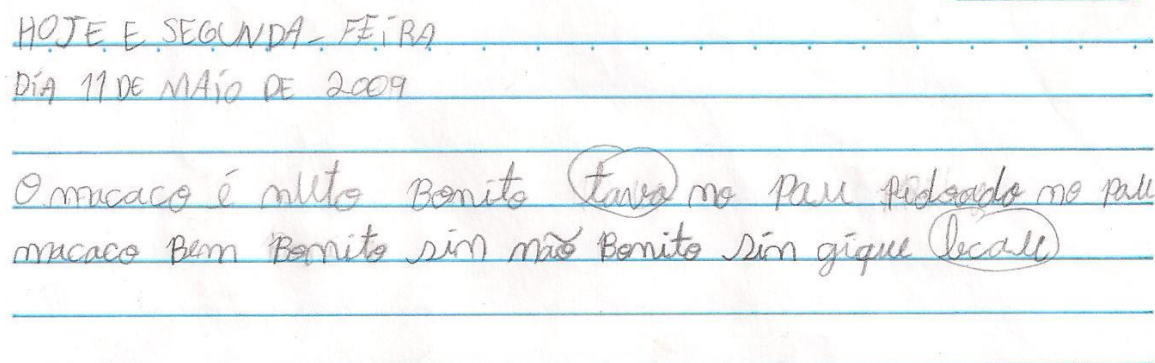 HOJE E SEGUNDA-FEIRA
DIA 11 DE MAIO DE 2009
O macaco é muto Bonito tava no Pau no Pau
macaco Bem Bonito sin não Bonito sin gique